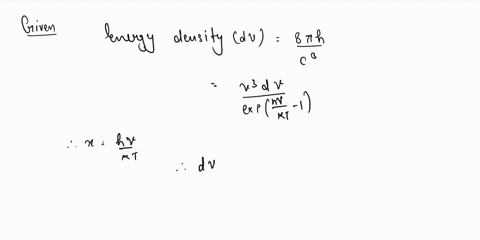 Given
Energy density (dν) = 8πh / c³
= ν³ dν / exp(hν/KT - 1)
∴ x = hν/KT
∴ dν